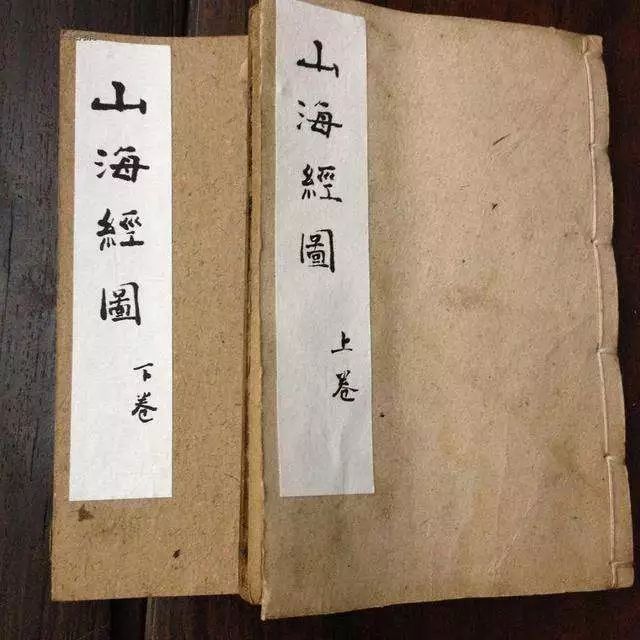 山海經圖
上卷
山海經圖
下卷